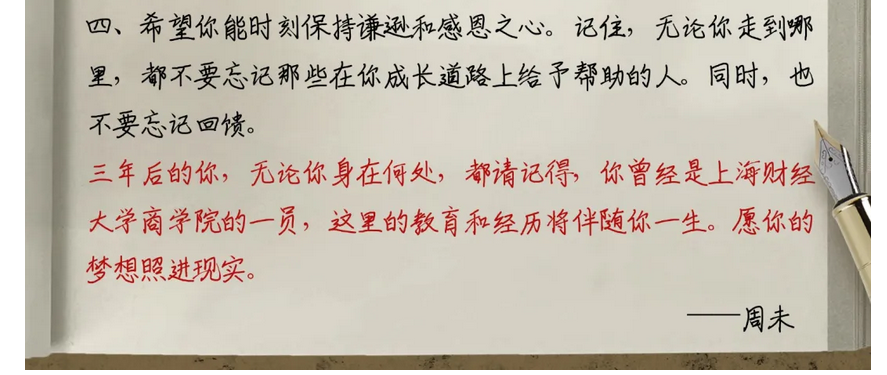 四、希望你能时刻保持谦逊和感恩之心。记住，无论你走到哪
里，都不要忘记那些在你成长道路上给予帮助的人。同时，也
不要忘记回馈。
三年后的你，无论你身在何处，都请记得，你曾经是上海财经
大学商学院的一员，这里的教育和经历将伴随你一生。愿你的
梦想照进现实。
——周未